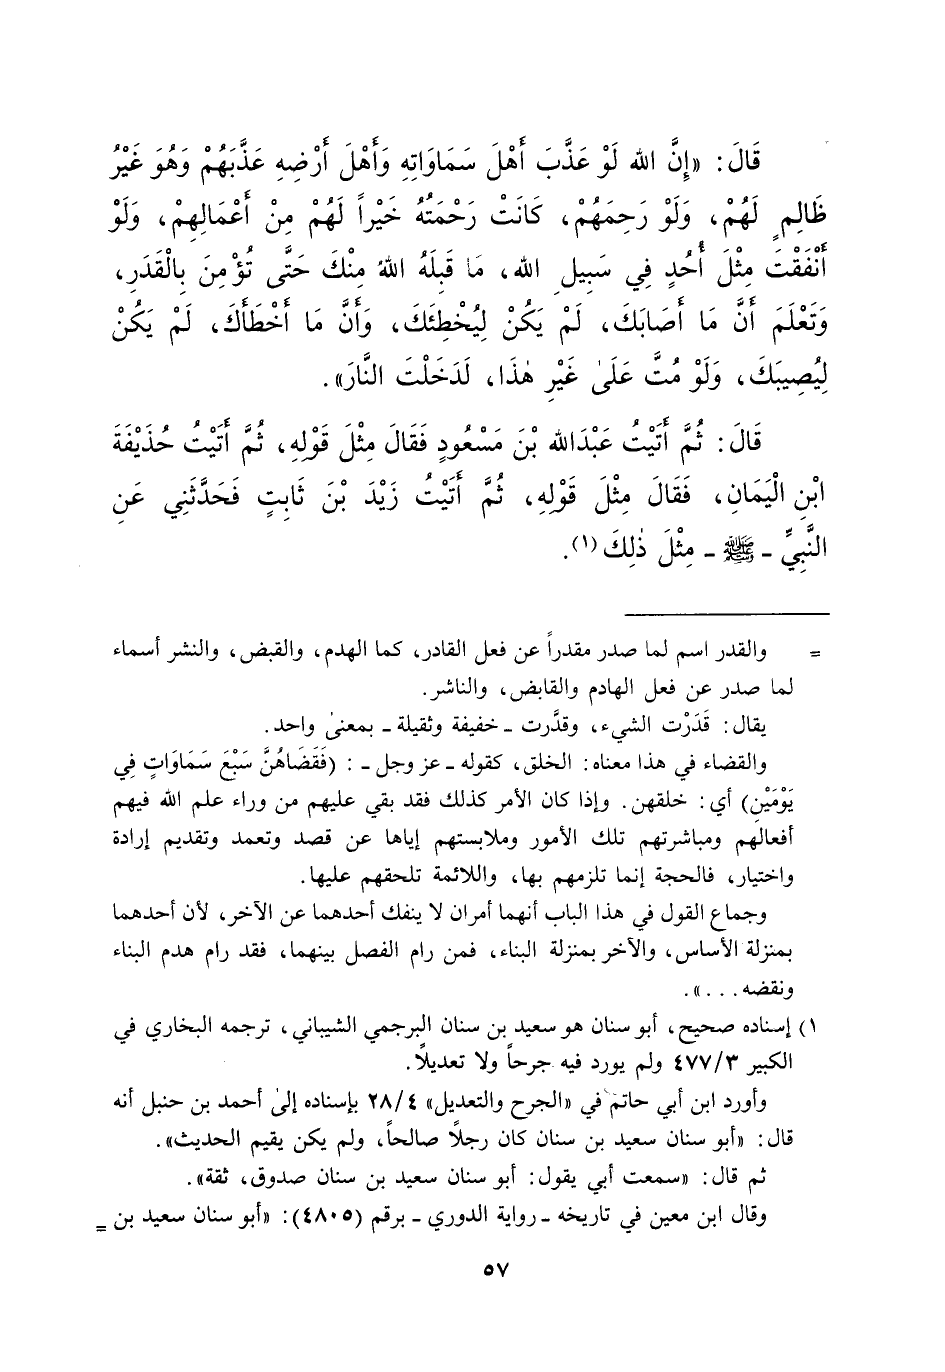 قَالَ: «إِنَّ الله لَوْ عَذَّبَ أَهْلَ سَمَاوَاتِهِ وَأَهْلَ أَرْضِهِ عَذَّبَهُمْ وَهُوَ غَيْرُ
ظَالِمٍ لَهُمْ، وَلَوْ رَحِمَهُمْ، كَانَتْ رَحْمَتُهُ خَيْراً لَهُمْ مِنْ أَعْمَالِهِمْ، وَلَوْ
أَنْفَقْتَ مِثْلَ أُحُدٍ فِي سَبِيلِ الله، مَا قَبِلَهُ اللهُ مِنْكَ حَتَّى تُؤْمِنَ بِالْقَدَرِ،
وَتَعْلَمَ أَنَّ مَا أَصَابَكَ، لَمْ يَكُنْ لِيُخْطِئَكَ، وَأَنَّ مَا أَخْطَأَكَ، لَمْ يَكُنْ
لِيُصِيبَكَ، وَلَوْ مُتَّ عَلَىٰ غَيْرِ هٰذَا، لَدَخَلْتَ النَّارَ».
قَالَ: ثُمَّ أَتَيْتُ عَبْدَالله بْنَ مَسْعُودٍ فَقَالَ مِثْلَ قَوْلِهِ، ثُمَّ أَتَيْتُ حُذَيْفَةَ
ابْنِ الْيَمَانِ، فَقَالَ مِثْلَ قَوْلِهِ، ثُمَّ أَتَيْتُ زَيْدَ بْنَ ثَابِتٍ فَحَدَّثَنِي عَنِ
النَّبِيِّ ـ ﷺ ـ مِثْلَ ذٰلِكَ (١).
= والقدر اسم لما صدر مقدراً عن فعل القادر، كما الهدم، والقبض، والنشر أسماء
لما صدر عن فعل الهادم والقابض، والناشر.
يقال: قَدَرْت الشيء، وقدَّرت ـ خفيفة وثقيلة ـ بمعنىٰ واحد.
والقضاء في هذا معناه: الخلق، كقوله ـ عز وجل ـ : (فَقَضَاهُنَّ سَبْعَ سَمَاوَاتٍ فِي
يَوْمَيْنِ) أي: خلقهن. وإذا كان الأمر كذلك فقد بقي عليهم من وراء علم الله فيهم
أفعالهم ومباشرتهم تلك الأمور وملابستهم إياها عن قصد وتعمد وتقديم إرادة
واختيار، فالحجة إنما تلزمهم بها، واللائمة تلحقهم عليها.
وجماع القول في هذا الباب أنهما أمران لا ينفك أحدهما عن الآخر، لأن أحدهما
بمنزلة الأساس، والآخر بمنزلة البناء، فمن رام الفصل بينهما، فقد رام هدم البناء
ونقضه...».
١) إسناده صحيح، أبو سنان هو سعيد بن سنان البرجمي الشيباني، ترجمه البخاري في
الكبير ٤٧٧/٣ ولم يورد فيه جرحاً ولا تعديلاً.
وأورد ابن أبي حاتم في «الجرح والتعديل» ٢٨/٤ بإسناده إلىٰ أحمد بن حنبل أنه
قال: «أبو سنان سعيد بن سنان كان رجلاً صالحاً، ولم يكن يقيم الحديث».
ثم قال: «سمعت أبي يقول: أبو سنان سعيد بن سنان صدوق، ثقة».
وقال ابن معين في تاريخه ـ رواية الدوري ـ برقم (٤٨٠٥): «أبو سنان سعيد بن =
٥٧